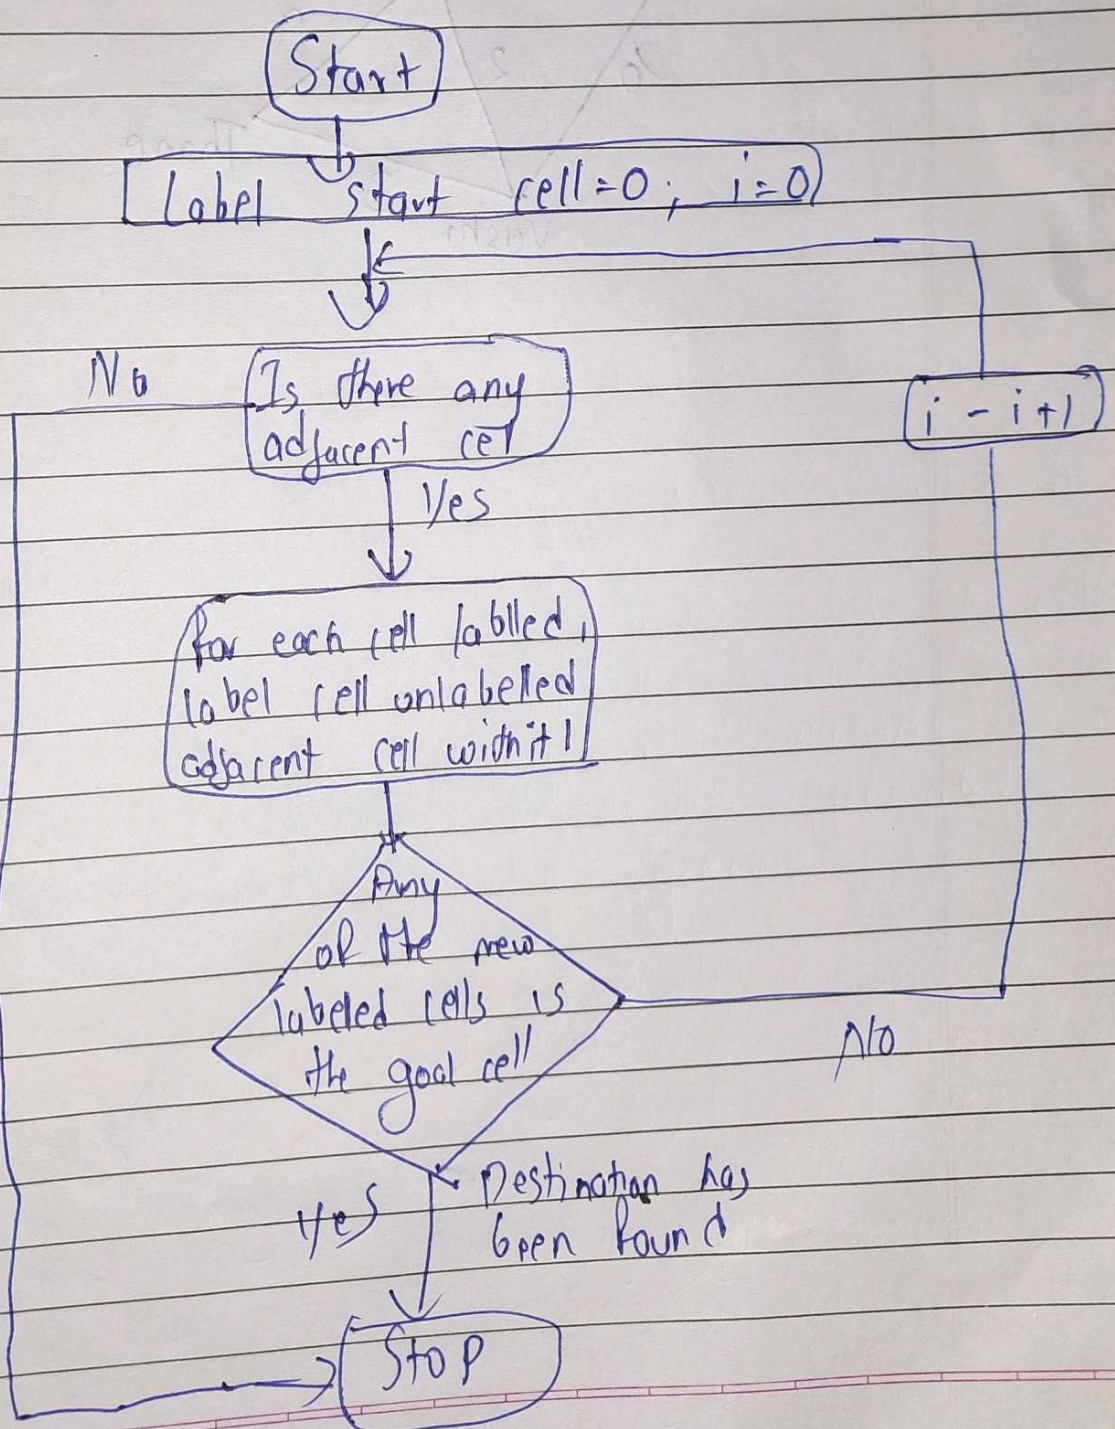 Start
Label start cell=0; i=0
No
Is there any
adjacent cel
i - i+1
Yes
for each cell lablled,
label cell unlabeled
adjacent cell with i+1
Any
of the new
labeled cells is
the goal cell
No
Yes
Destination has
been found
Stop